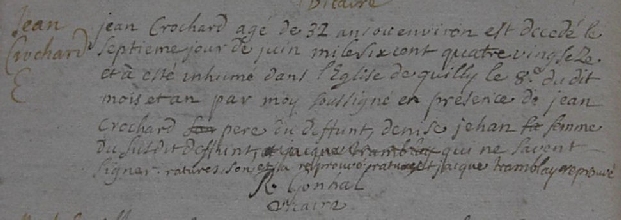 Vicaire
Jean
Crochard
jean Crochard agé de 32 ans ou environ est decedé le
septieme jour de juin mile six cent quatre vingt seze
et à esté inhumé dans l'Eglise de quilly le 8.e du dit
mois et an par moy soussigné en présence de jean
Crochard pere du deffunt, denise jehan femme
du susdit deffunt, et jacque tramblay qui ne savent
signer. ratures son et la reprouvé et jacque tramblay reprouvé
R Gonhal
Vicaire